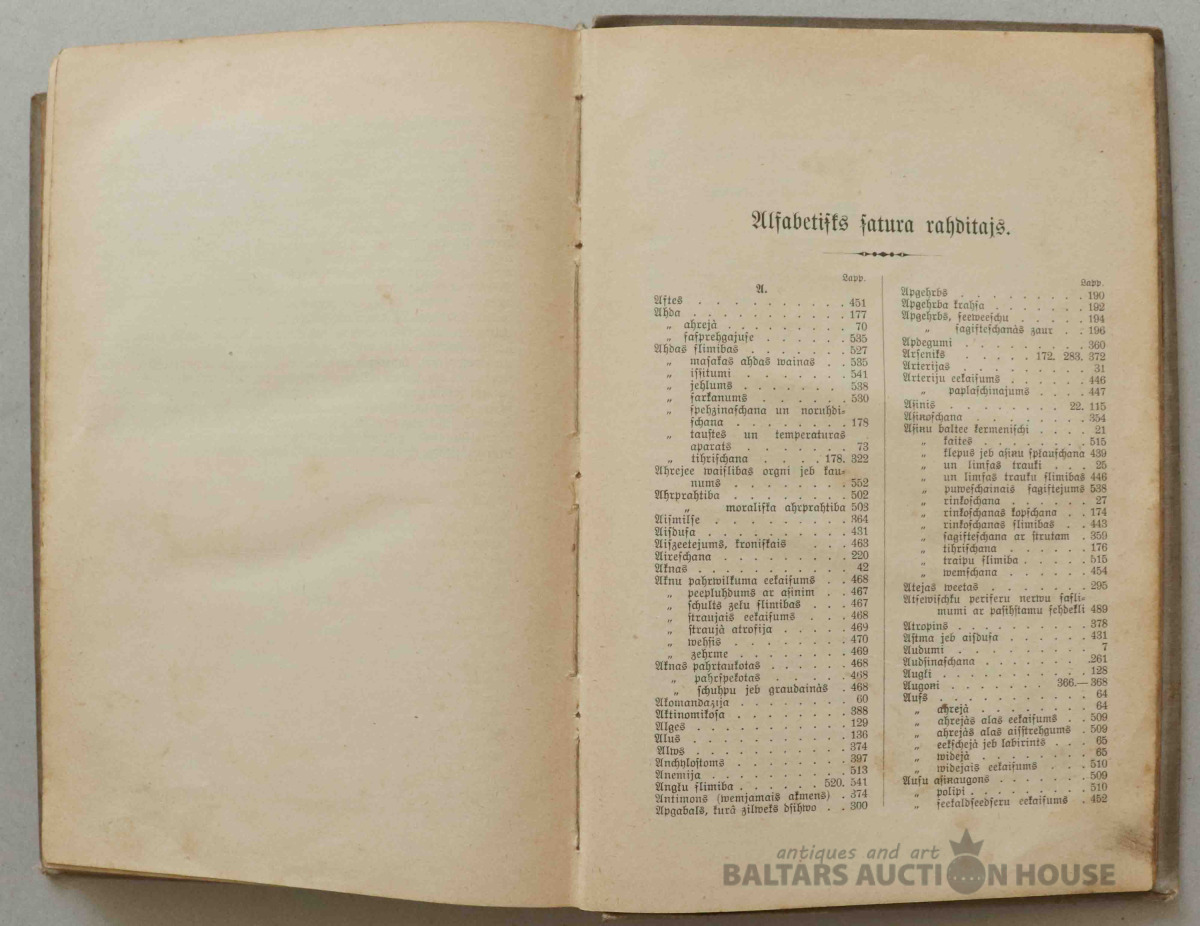 Alfabetiſks ſatura rahditajs.
Lapp.
A.
Aſtes . . . . . . . . . . . 451
Ahda . . . . . . . . . . . 177
„ ahrejà . . . . . . . . . 70
„ ſaſprehgajuſe . . . . . . 535
Ahdas ſlimibas . . . . . . . 527
„ maſakas ahdas wainas . . 535
„ iſſitumi . . . . . . . 541
„ jehlums . . . . . . . 538
„ ſarkanums . . . . . . 530
„ ſpehzinaſchana un noruhdi-
ſchana . . . . . . . 178
„ tauſtes un temperaturas
aparats . . . . . . . 73
„ tihriſchana . . . . 178. 322
Ahrejee waiſlibas orgni jeb kau-
nums . . . . . . . . . 552
Ahrprahtiba . . . . . . . . 502
„ moraliſka ahrprahtiba 503
Aiſmilſe . . . . . . . . . 364
Aiſduſa . . . . . . . . . . 431
Aiſzeetejums, kroniſkais . . . 463
Aireſchana . . . . . . . . . 220
Aknas . . . . . . . . . . . 42
Aknu pahrwilkuma eekaiſums . . 468
„ peepluhdums ar aſinim . . 467
„ ſchults zeku ſlimibas . . . 467
„ ſtraujais eekaiſums . . . 468
„ ſtraujà atrofija . . . . . 469
„ wehſis . . . . . . . . 470
„ zehrme . . . . . . . . 469
Aknas pahrtaukotas . . . . . 468
„ pahrſpekotas . . . . . 468
„ ſchuhpu jeb graudainàs . 468
Akomandazija . . . . . . . . 60
Aktinomikoſa . . . . . . . . 388
Alges . . . . . . . . . . . 129
Alus . . . . . . . . . . . 136
Alws . . . . . . . . . . . 374
Anchyloſtoms . . . . . . . . 397
Anemija . . . . . . . . . . 513
Angļu ſlimiba . . . . . . 520. 541
Antimons (wemjamais akmens) . 374
Apgabals, kurâ zilweks dſihwo . . 300
Lapp.
Apgehrbs . . . . . . . . . 190
Apgehrba krahſa . . . . . . . 192
Apgehrbs, ſeeweeſchu . . . . . 194
„ ſagifteſchanàs zaur . . 196
Apdegumi . . . . . . . . . 360
Arſeniks . . . . . 172. 283. 372
Arterijas . . . . . . . . . . 31
Arteriju eekaiſums . . . . . . 446
„ paplaſchinajums . . . . 447
Aſinis . . . . . . . . . 22. 115
Aſinoſchana . . . . . . . . . 354
Aſinu baltee kermeniſchi . . . . 21
„ kaites . . . . . . . . . 515
„ klepus jeb aſinu ſplauſchana 439
„ un limfas trauki . . . 25
„ un limfas trauku ſlimibas 446
„ puweſchainais ſagiftejums 538
„ rinkoſchana . . . . . . 27
„ rinkoſchanas kopſchana . . 174
„ rinkoſchanas ſlimibas . . 443
„ ſagifteſchana ar ſtrutam . 359
„ tihriſchana . . . . . . 176
„ traipu ſlimiba . . . . . 515
„ wemſchana . . . . . . 454
Atejas weetas . . . . . . . . 295
Atſewiſchķu periferu nerwu ſaſli-
mumi ar paſihſtamu ſehdekli 489
Atropins . . . . . . . . . . 378
Aſtma jeb aiſduſa . . . . . . 431
Audumi . . . . . . . . . . 7
Audſinaſchana . . . . . . . . 261
Augļi . . . . . . . . . . . 128
Augoni . . . . . . . . 366.—368
Auſs . . . . . . . . . . . 64
„ ahrejà . . . . . . . . 64
„ ahrejàs alas eekaiſums . . 509
„ ahrejàs alas aiſſtrehgums . 509
„ eekſchejà jeb labirints . . . 65
„ widejà . . . . . . . . 65
„ widejais eekaiſums . . . . 510
Auſu aſinaugons . . . . . . . 509
„ polipi . . . . . . . . . 510
„ ſeekaldſeedſeru eekaiſums . 452
antiques and art
BALTARS AUCTION HOUSE